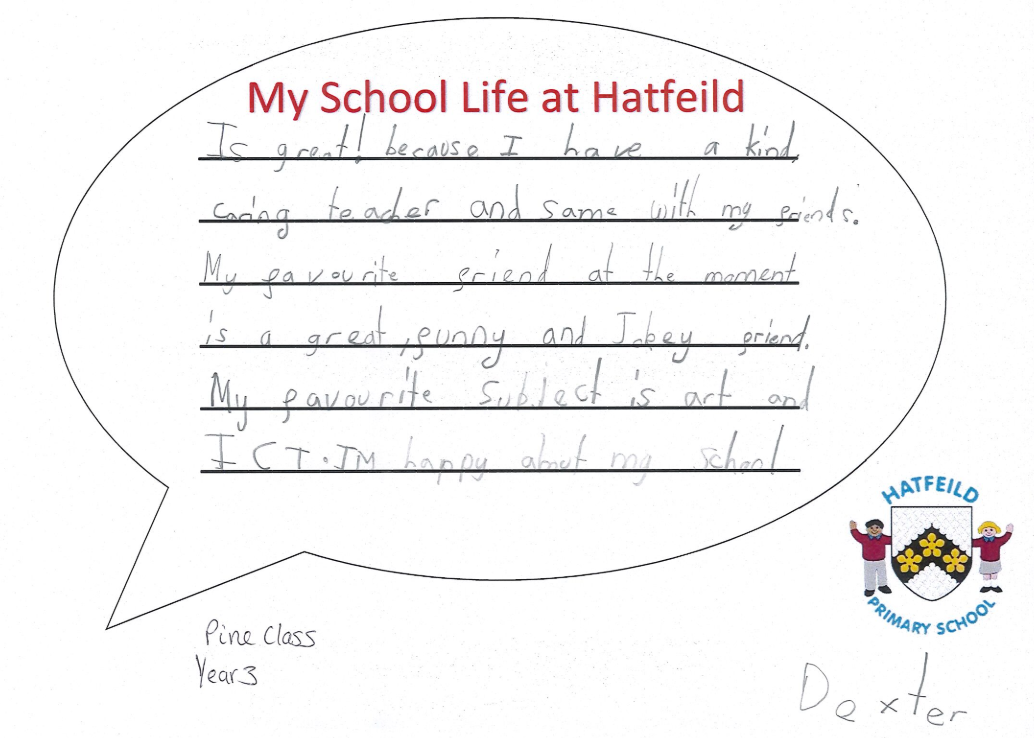 My School Life at Hatfeild
Is great! because I have a kind,
caring teacher and same with my friends.
My favourite friend at the moment
is a great, funny and Jokey friend.
My favourite Subject is art and
I C T. IM happy about my school
HATFEILD
PRIMARY SCHOOL
Pine Class
Year 3
Dexter